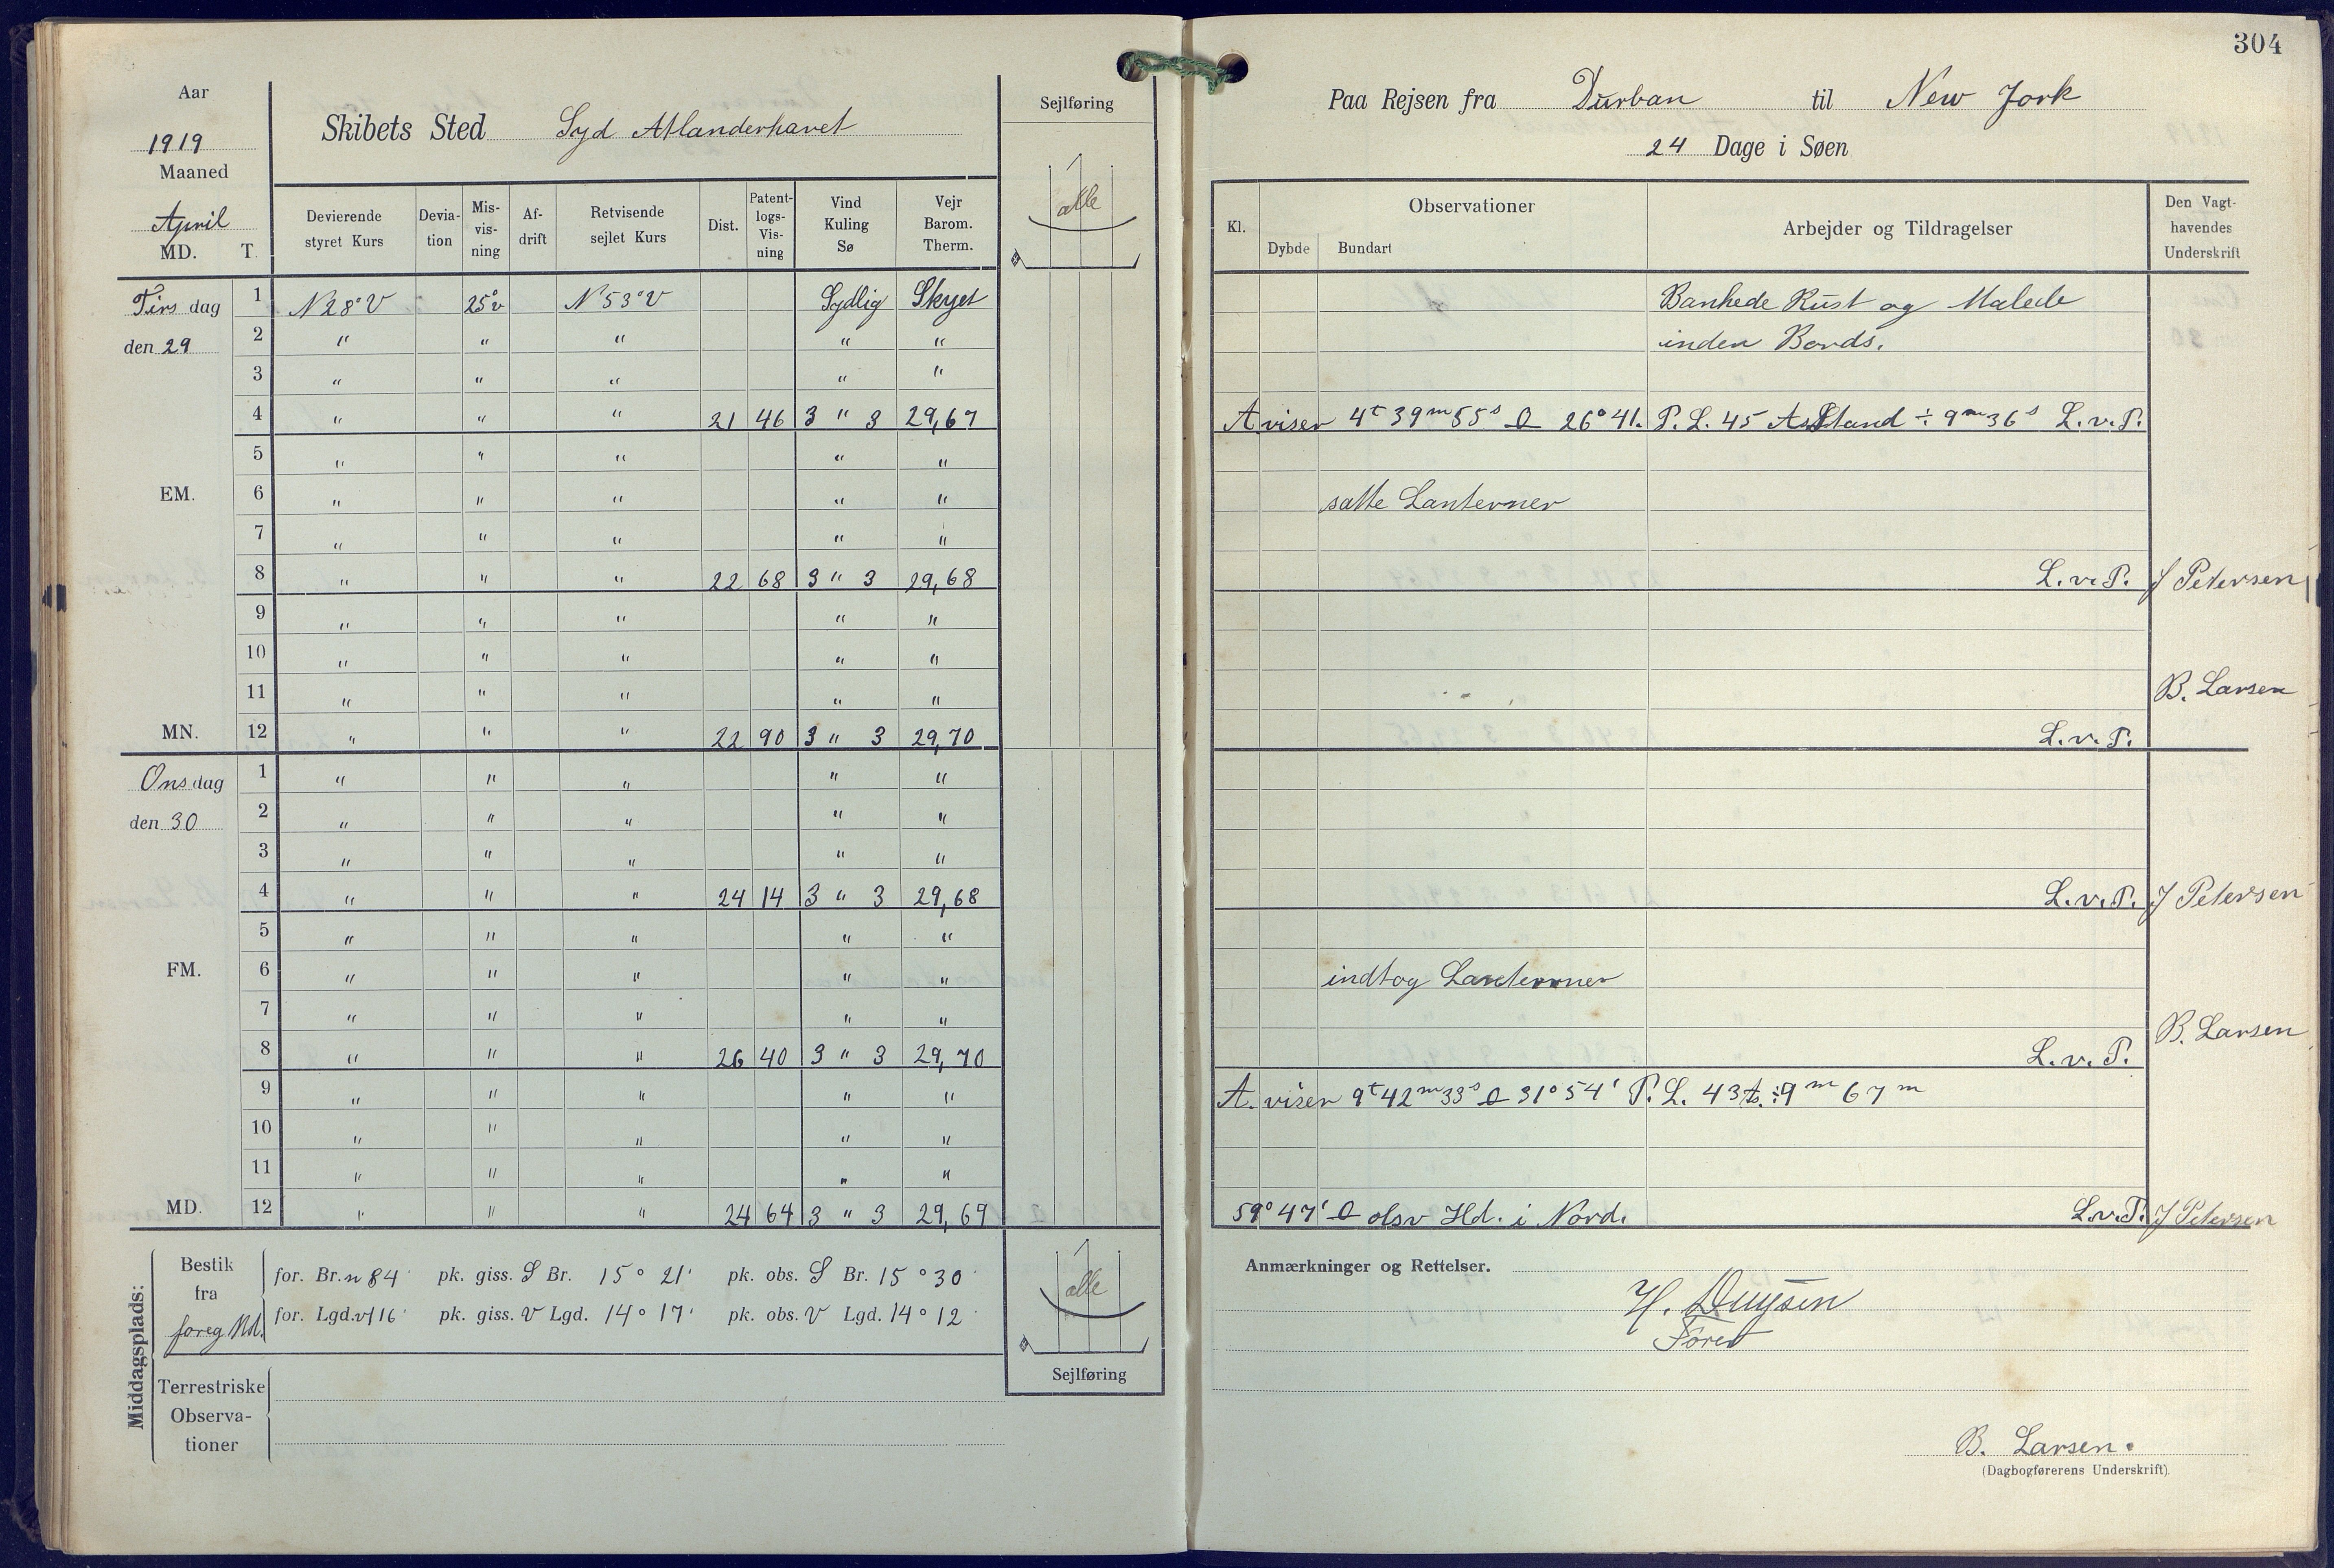 304
Aar
1919
Maaned
April
MD. T.
Skibets Sted Syd Atlanderhavet
Sejlføring
alle
Devierende styret Kurs
Deviation
Misvisning
Afdrift
Retvisende sejlet Kurs
Dist.
Patentlogs-Visning
Vind Kuling Sø
Vejr Barom. Therm.
Tirsdag 1 N28°V 25°v N53°V Sydlig Skyet
den 29 2 " " " " "
3 " " " " "
4 " " " 21 46 3 " 3 29,67
5 " " " " "
EM. 6 " " " " "
7 " " " " "
8 " " " 22 68 3 " 3 29,68
9 " " " " "
10 " " " " "
11 " " " " "
MN. 12 " " " 22 90 3 " 3 29,70
Onsdag 1 " " " " "
den 30 2 " " " " "
3 " " " " "
4 " " " 24 14 3 " 3 29,68
5 " " " " "
FM. 6 " " " " "
7 " " " " "
8 " " " 26 40 3 " 3 29,70
9 " " " " "
10 " " " " "
11 " " " " "
MD. 12 " " " 24 64 3 " 3 29,69
Middagsplads:
Bestik fra foreg Md.
for. Br. n 84' pk. giss. S Br. 15° 21' pk. obs. S Br. 15° 30'
for. Lgd. v 116' pk. giss. V Lgd. 14° 17' pk. obs. V Lgd. 14° 12'
Terrestriske Observationer
alle
Sejlføring
Paa Rejsen fra Durban til New Jork
24 Dage i Søen
Kl.
Observationer
Dybde Bundart
Arbejder og Tildragelser
Den Vagthavendes Underskrift
Bankede Rust og Malede
inden Bords.
A viser 4t 39m 55s O 26° 41. P. L. 45 A Stand ÷ 9m 36s L.v.P.
satte Lanterner
L.v.P. J Petersen
B. Larsen
L.v.P.
L.v.P. J Petersen
indtog Lanterner
B. Larsen
L.v.P.
A. viser 9t 42m 33s O 31° 54' P. L. 43 ÷ 9m 67m
59° 47' O obsv Hd. i Nord. L.v.P. J Petersen
Anmærkninger og Rettelser.
H. Duysen
Fører
B. Larsen.
(Dagbogførerens Underskrift).